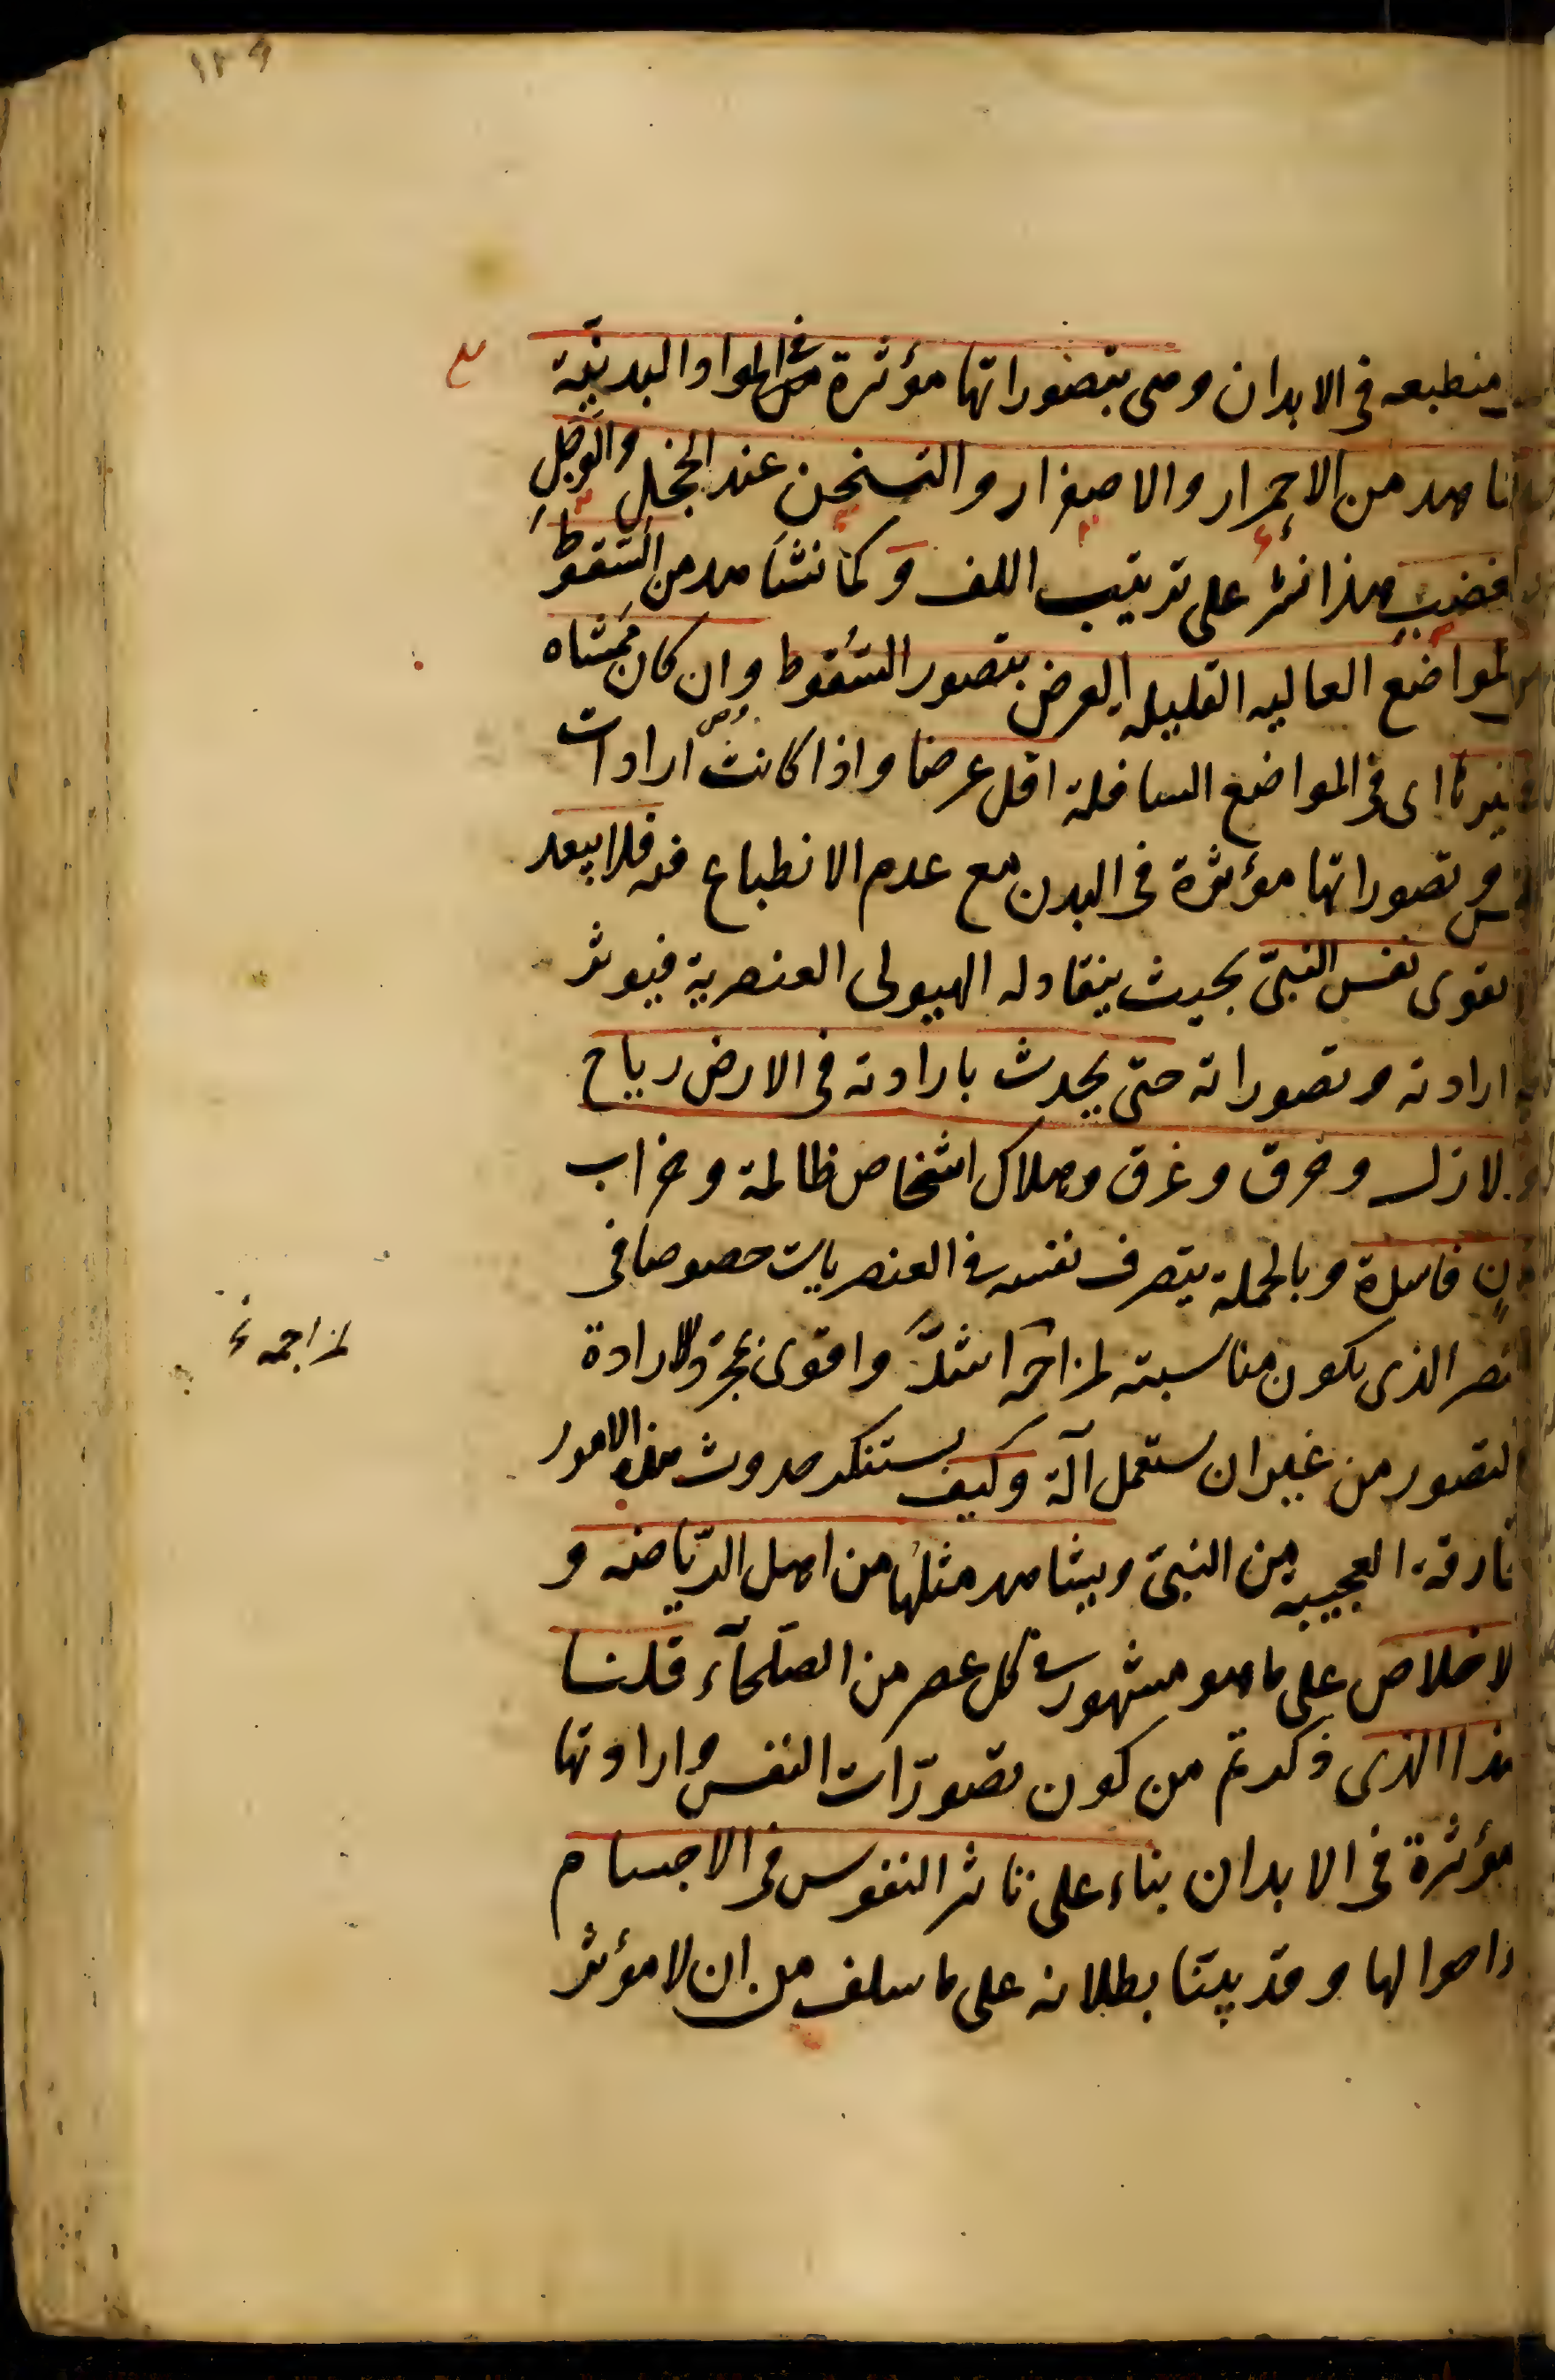 ١٢٩
منطبعه فى الابدان وهى بتصوراتها مؤثرة فى المواد البدنية
نشاهد من الاحمرار والاصفرار والتسخن عند الخجل والوجل
والغضب هذا نشر على ترتيب اللف وكما نشاهد من السقوط
من المواضع العاليه القليله العرض بتصور السقوط وان كان ممشاه
فى غيرها اى فى المواضع السافلة اقل عرضا واذا كانت ارادات
النفس وتصوراتها مؤثرة فى البدن مع عدم الانطباع فيه فلا يبعد
ان تقوى نفس النبىّ بحيث ينقاد له الهيولى العنصرية فيوثر
فيه ارادته وتصوراته حتى يحدث بارادته فى الارض رياح
وزلازل وحرق وغرق وهلاك اشخاص ظالمة وخراب
مدنٍ فاسدة وبالجملة يتصرف نفسه فى العنصريات خصوصا فى
العنصر الذى يكون مناسبته لمزاجه اشدّ واقوى بمجرد الارادة
لمزاجه
والتصور من غير ان يستعمل آلة وكيف يستنكر حدوث هذه الامور
الخارقة العجيبه من النبىّ ويشاهد مثلها من اهل الرّياضه و
الاخلاص على ما هو مشهور فى كل عصر من الصلحآء قلنا
هذا الذى ذكرتم من كون تصوّرات النفس وارادتها
مؤثرة فى الابدان بناء على تاثير النفوس فى الاجسام
واحوالها وقد بيّنا بطلانه على ما سلف من ان لا مؤثر